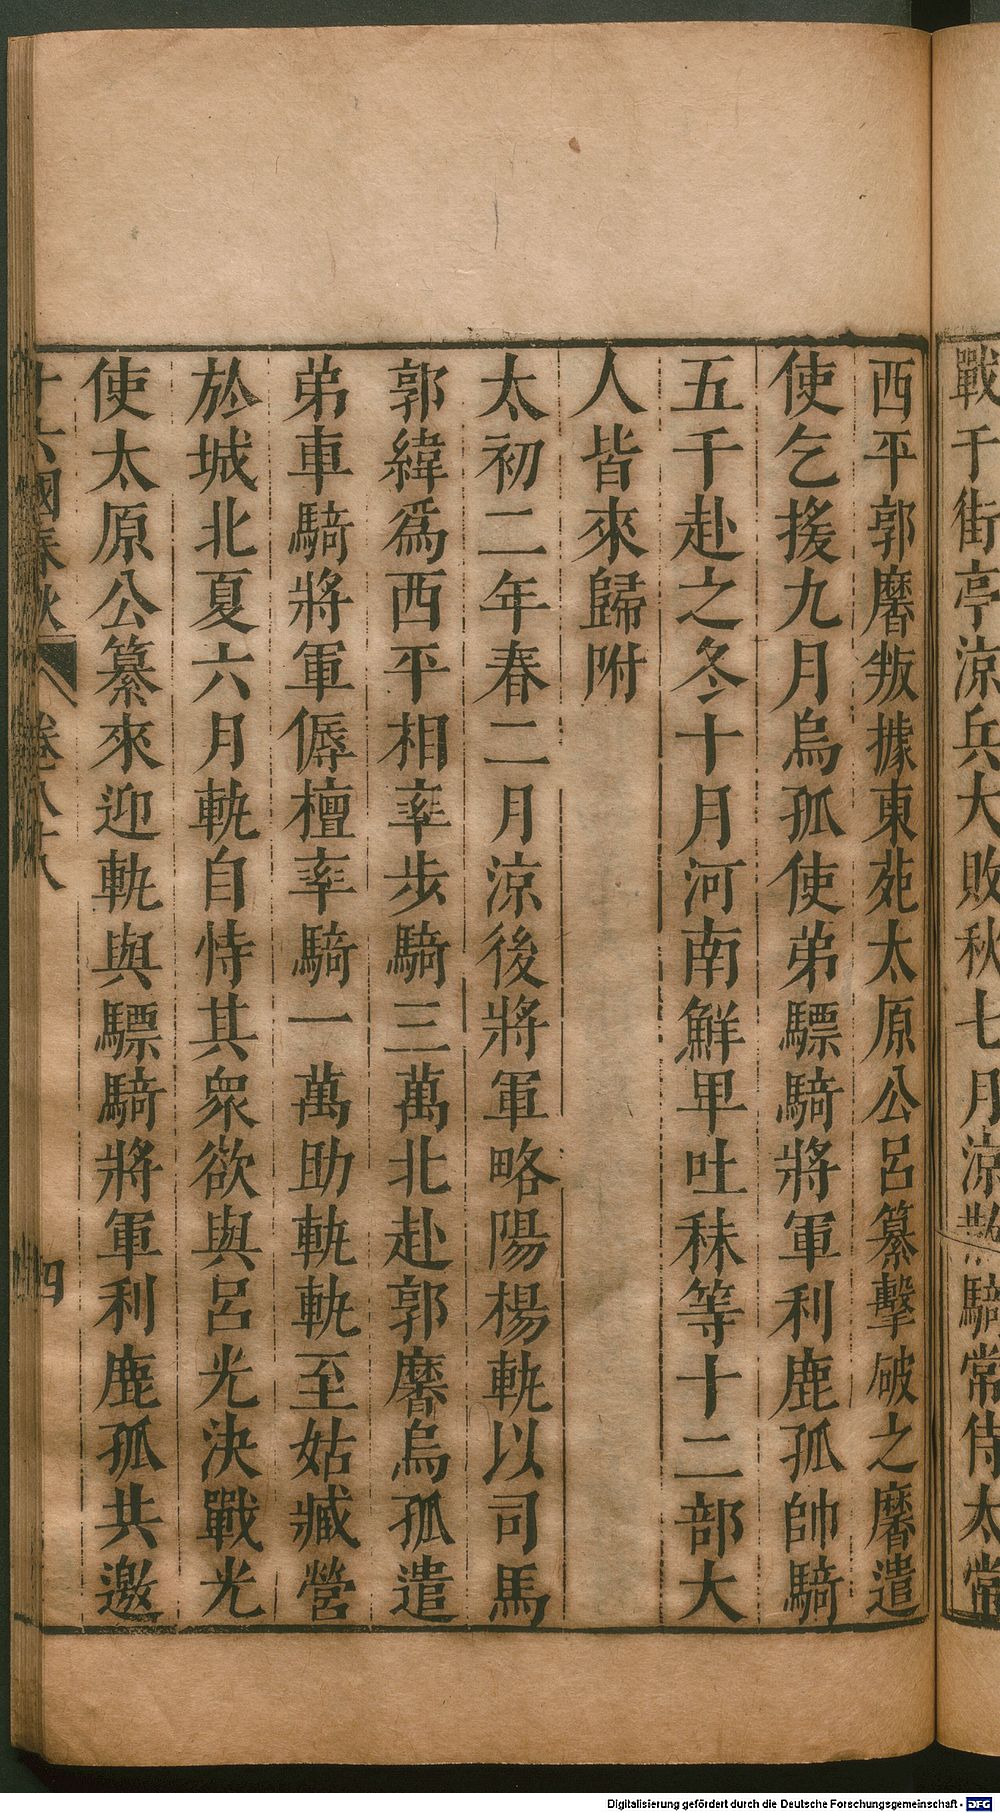 戰于街亭涼兵大敗秋七月涼散騎常侍太常
西平郭黁叛據東苑太原公呂纂擊破之黁遣
使乞援九月烏孤使弟驃騎將軍利鹿孤帥騎
五千赴之冬十月河南鮮卑吐秣等十二部大
人皆來歸附
太初二年春二月涼後將軍略陽楊軌以司馬
郭緯爲西平相率步騎三萬北赴郭黁烏孤遣
弟車騎將軍傉檀率騎一萬助軌軌至姑臧營
於城北夏六月軌自恃其衆欲與呂光決戰光
使太原公纂來迎軌與驃騎將軍利鹿孤共邀
十六國春秋 卷八十八 四
Digitalisierung gefördert durch die Deutsche Forschungsgemeinschaft - DFG